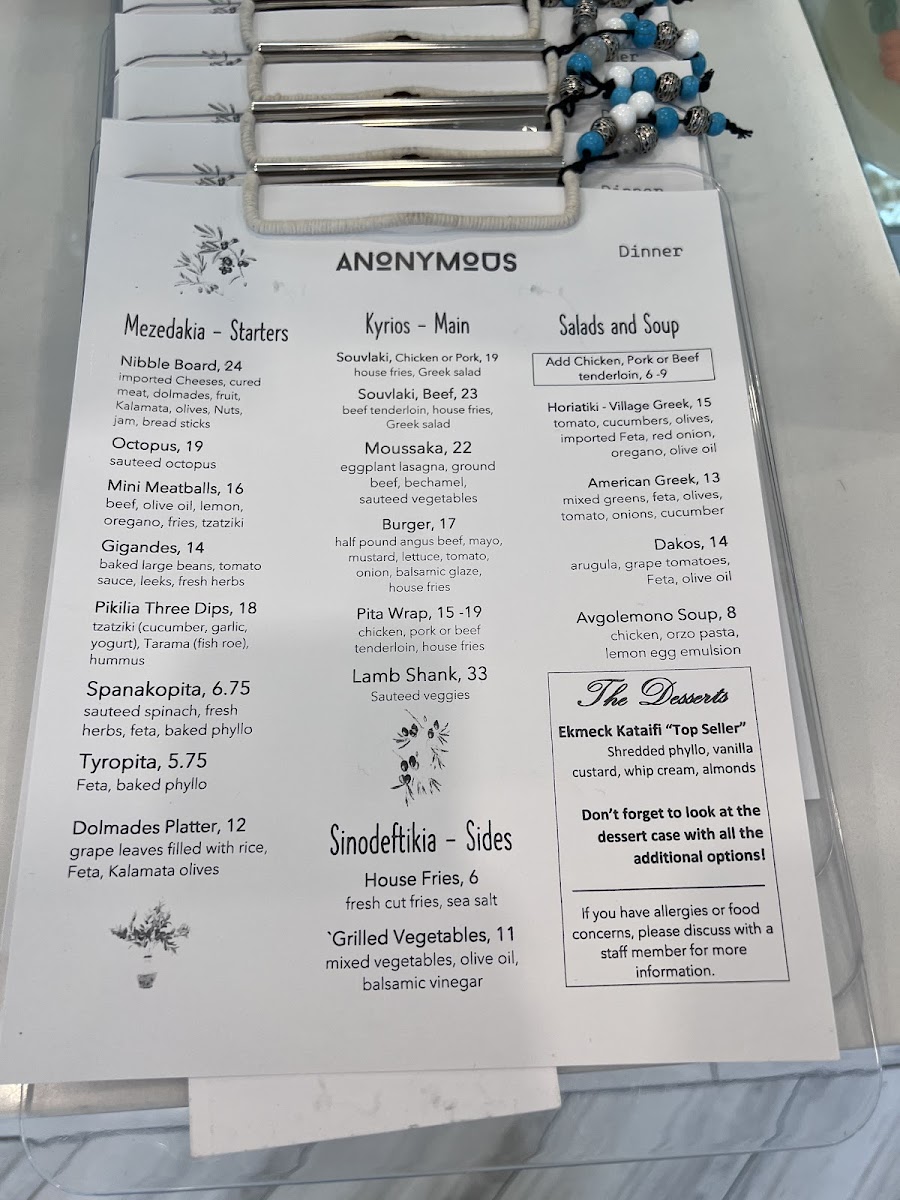 ANONYMOUS
Dinner
Mezedakia - Starters
Nibble Board, 24
imported Cheeses, cured
meat, dolmades, fruit,
Kalamata, olives, Nuts,
jam, bread sticks
Octopus, 19
sauteed octopus
Mini Meatballs, 16
beef, olive oil, lemon,
oregano, fries, tzatziki
Gigandes, 14
baked large beans, tomato
sauce, leeks, fresh herbs
Pikilia Three Dips, 18
tzatziki (cucumber, garlic,
yogurt), Tarama (fish roe),
hummus
Spanakopita, 6.75
sauteed spinach, fresh
herbs, feta, baked phyllo
Tyropita, 5.75
Feta, baked phyllo
Dolmades Platter, 12
grape leaves filled with rice,
Feta, Kalamata olives
Kyrios - Main
Souvlaki, Chicken or Pork, 19
house fries, Greek salad
Souvlaki, Beef, 23
beef tenderloin, house fries,
Greek salad
Moussaka, 22
eggplant lasagna, ground
beef, bechamel,
sauteed vegetables
Burger, 17
half pound angus beef, mayo,
mustard, lettuce, tomato,
onion, balsamic glaze,
house fries
Pita Wrap, 15 -19
chicken, pork or beef
tenderloin, house fries
Lamb Shank, 33
Sauteed veggies
Sinodeftikia - Sides
House Fries, 6
fresh cut fries, sea salt
`Grilled Vegetables, 11
mixed vegetables, olive oil,
balsamic vinegar
Salads and Soup
Add Chicken, Pork or Beef
tenderloin, 6 -9
Horiatiki - Village Greek, 15
tomato, cucumbers, olives,
imported Feta, red onion,
oregano, olive oil
American Greek, 13
mixed greens, feta, olives,
tomato, onions, cucumber
Dakos, 14
arugula, grape tomatoes,
Feta, olive oil
Avgolemono Soup, 8
chicken, orzo pasta,
lemon egg emulsion
The Desserts
Ekmeck Kataifi “Top Seller”
Shredded phyllo, vanilla
custard, whip cream, almonds
Don’t forget to look at the
dessert case with all the
additional options!
If you have allergies or food
concerns, please discuss with a
staff member for more
information.